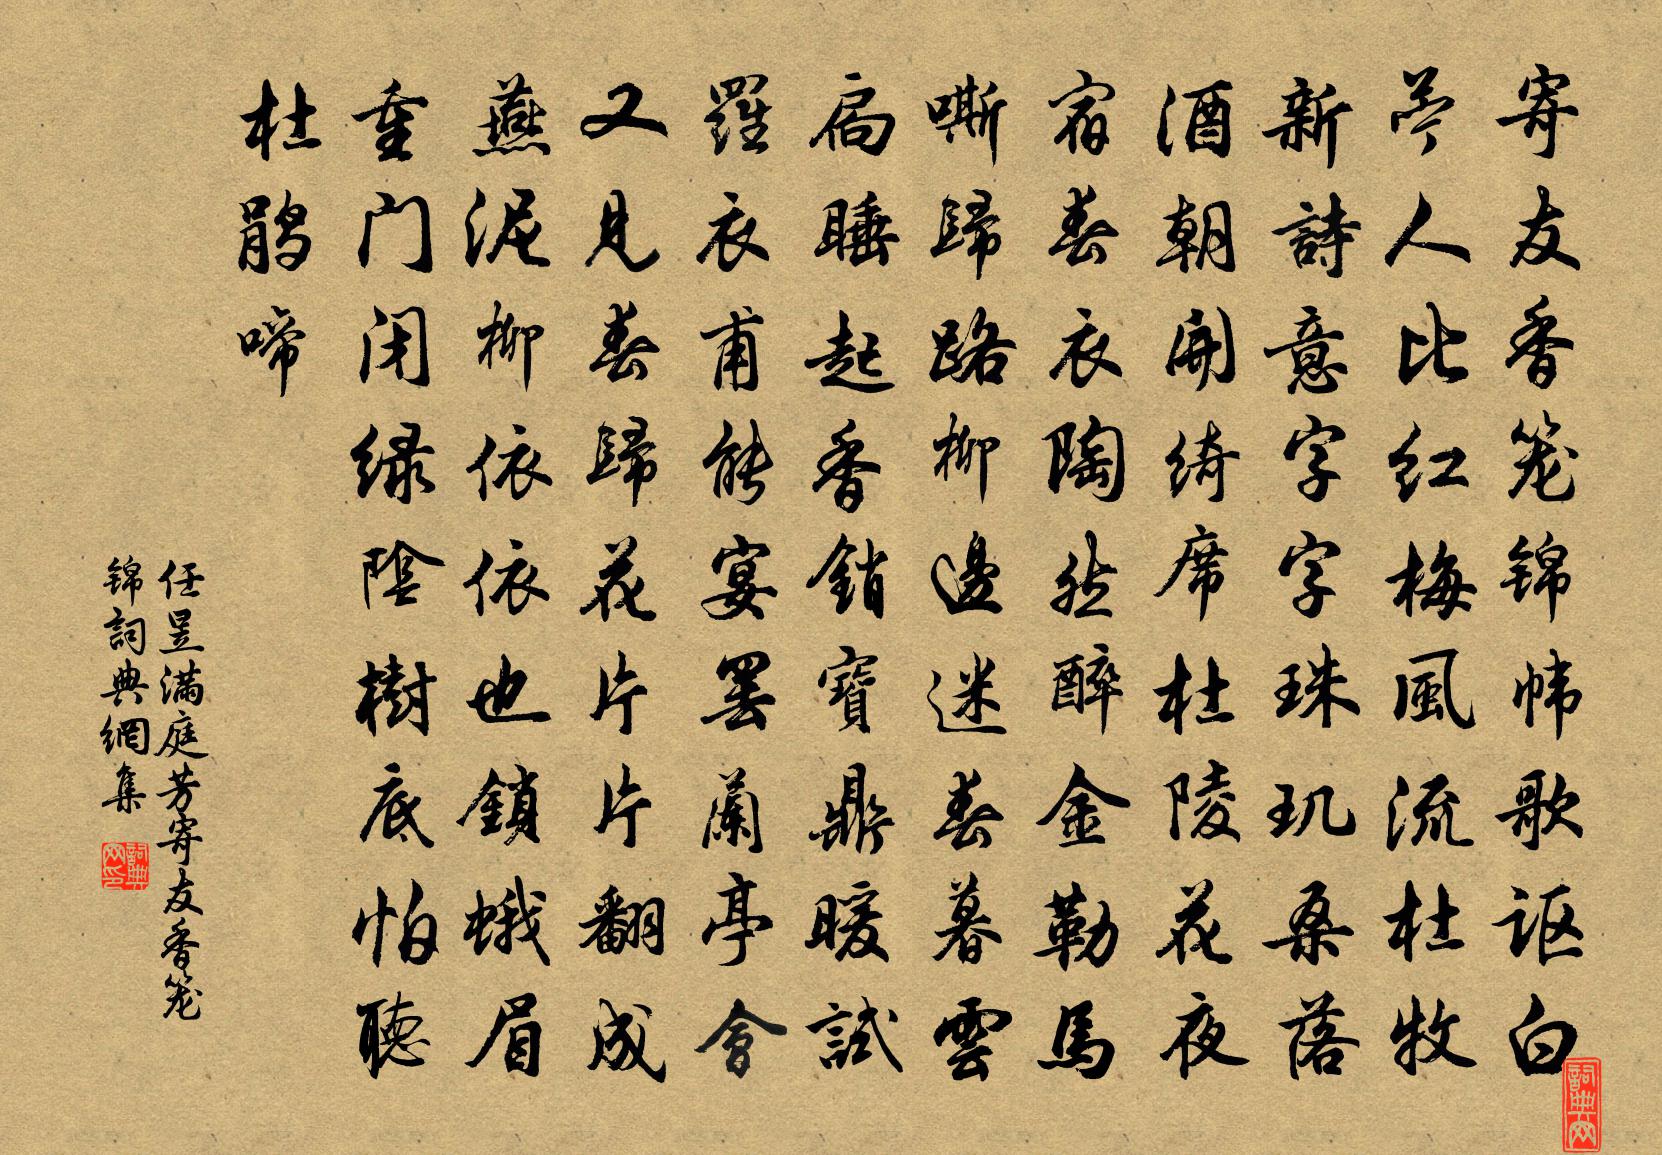 寄友香笼锦帏歌讴白
苎人比红梅风流杜牧
新詩意字字珠玑桑落
酒朝開绮席杜陵花夜
宿春衣陶然醉金勒馬
嘶歸路柳邊迷春暮雲
扃睡起香銷寶鼎暖試
羅衣甫能宴罢蘭亭會
又見春歸花片片翻成
燕泥柳依依也鎖蛾眉
重门闭绿陰樹底怕聽
杜鹃啼
任昱满庭芳寄友香笼
锦詞典網集
詞典网印
詞典网